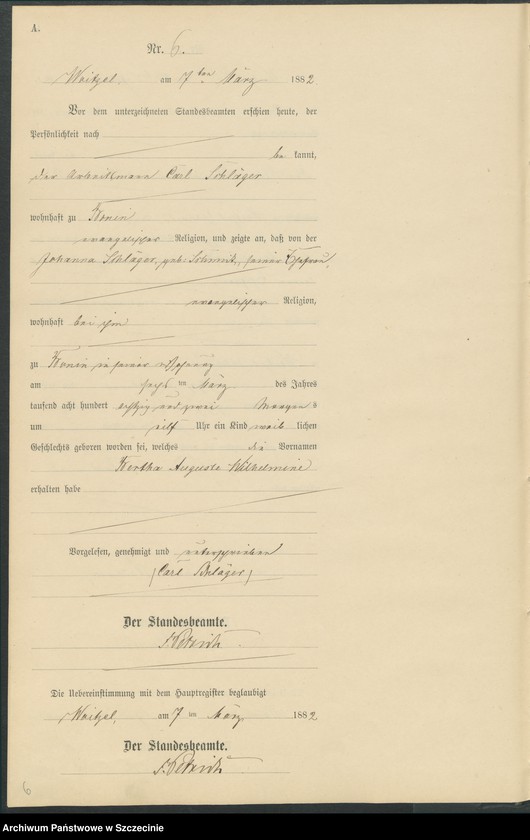 A.
Nr. 6.
Weitzel am 7ten März 1882
Vor dem unterzeichneten Standesbeamten erschien heute, der
Persönlichkeit nach
be kannt,
der Arbeitsmann Carl Schläger
wohnhaft zu
evangelischer Religion, und zeigte an, daß von der
Johanna Schläger, geb. seiner Ehefrau,
evangelischer Religion,
wohnhaft bei ihm
zu in seiner Wohnung
am sechs ten März des Jahres
tausend acht hundert achtzig und zwei
um elf Uhr ein Kind weib lichen
Geschlechts geboren worden sei, welches die Vornamen
Bertha Auguste Wilhelmine
erhalten habe
Vorgelesen, genehmigt und unterschrieben
(Carl Schläger)
Der Standesbeamte.
Die Uebereinstimmung mit dem Hauptregister beglaubigt
Weitzel, am 7 ten März 1882
Der Standesbeamte.
6
Archiwum Państwowe w Szczecinie